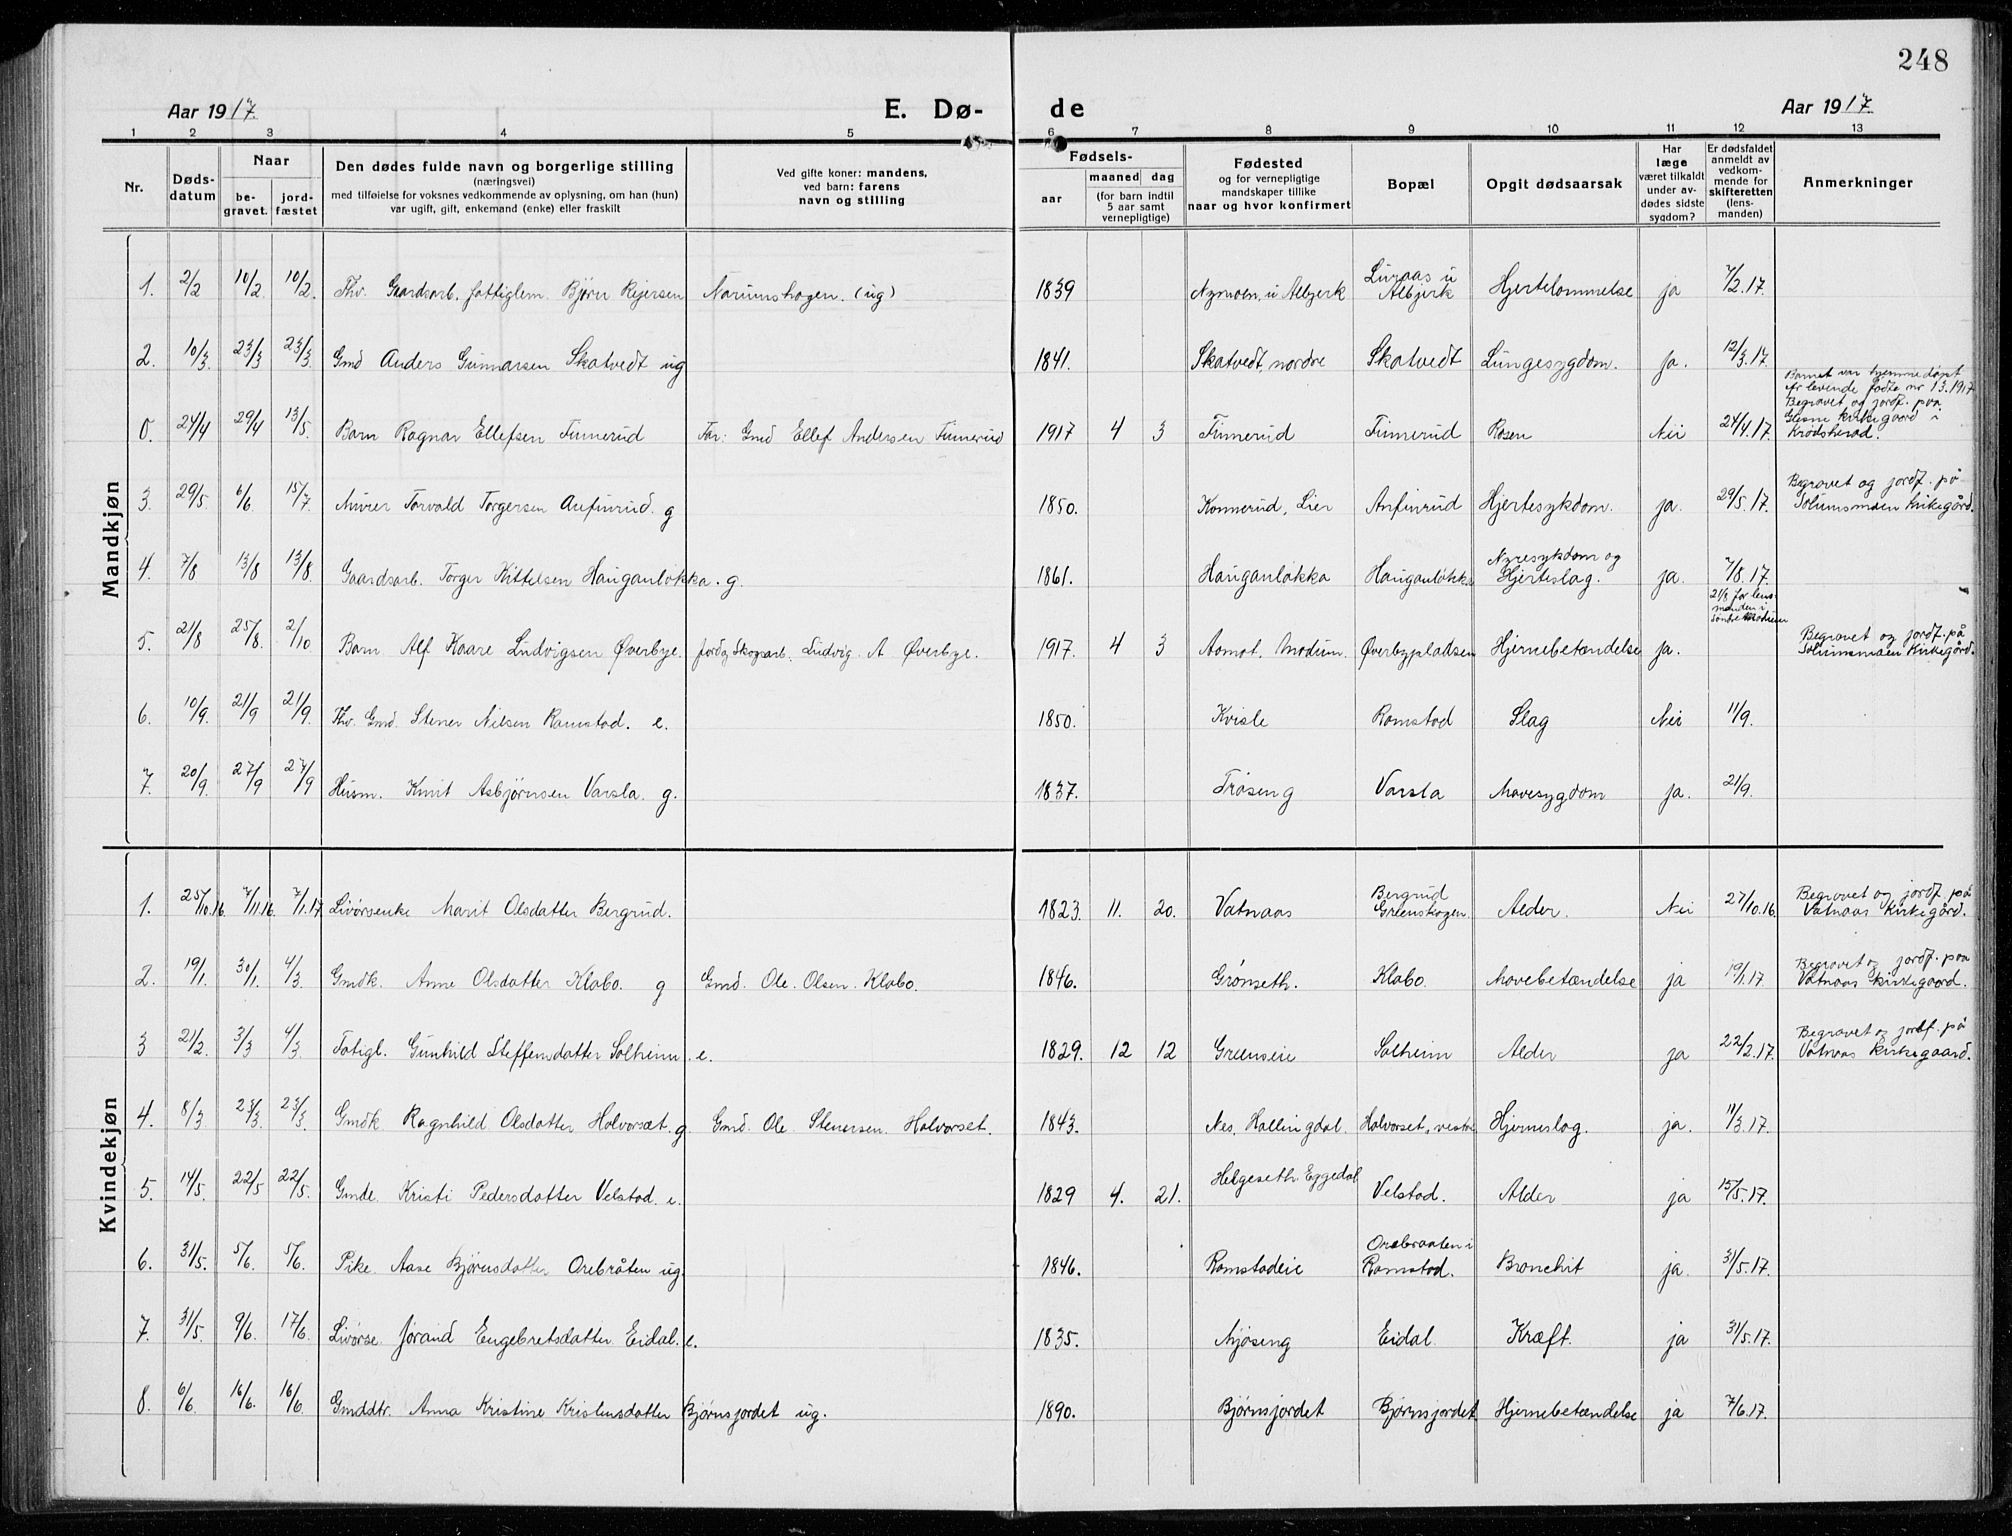 248
Aar 1917. E. Dø- de Aar 1917.
1 2 3 4 5 6 7 8 9 10 11 12 13
Nr.
Døds-
datum
Naar
be-
gravet.
jord-
fæstet
Den dødes fulde navn og borgerlige stilling
(næringsvei)
med tilføielse for voksnes vedkommende av oplysning, om han (hun)
var ugift, gift, enkemand (enke) eller fraskilt
Ved gifte koner: mandens,
ved barn: farens
navn og stilling
Fødsels-
aar
maaned dag
(for barn indtil
5 aar samt
vernepligtige)
Fødested
og for vernepligtige
mandskaper tillike
naar og hvor konfirmert
Bopæl
Opgit dødsaarsak
Har
læge
været tilkaldt
under av-
dødes sidste
sygdom?
Er dødsfaldet
anmeldt av
vedkom-
mende for
skifteretten
(lens-
manden)
Anmerkninger
Mandkjøn
1. 2/2 10/2 10/2. Fhv. Gaardsarb. fattiglem. Bjørn Reiersen Narumshagen. (ug) 1839 Nymoen, u Albjerk Luraas u Albjerk Hjertelammelse ja 7/2.17.
2. 10/3. 23/3 23/3. Gmd Anders Gunnarsen Skatvedt ug 1841. Skatvedt, nordre Skatvedt Lungesygdom. ja. 12/3.17.
0. 24/4 29/4 13/5. Barn Ragnar Ellefsen Finnerud Far: Gmd Ellef Andersen Finnerud 1917 4 3 Finnerud Finnerud Rosen Nei 24/4.17.
Barnet var hjemmedøpt
Av levende fødte nr 13.1917
Begravet og jordf. paa
Glesne kirkegaard i
Krødsherad.
3. 29/5. 6/6. 15/7 Murer Torvald Torgersen Anfinrud. g 1850. Konnerud, Lier Anfinrud Hjertesykdom. ja. 29/5.17.
Begravet og jordf. på
Solumsmoen kirkegård.
4. 7/8 13/8 13/8. Gaardsarb. Torger Kittelsen Hauganløkka. g. 1861. Hauganløkka Hauganløkka Nyresykdom og Hjerteslag. ja. 7/8.17.
5. 21/8 25/8. 2/10 Barn Alf Kaare Ludvigsen Øverbye. Jord og Skogsarb. Ludvig. A Øverbye. 1917. 4 3 Aamot, Modum. Øverbypladsen Hjernebetændelse ja.
21/8 for lens-
manden i
søndre Modum
Begravet og jordf. på
Solumsmoen Kirkegård.
6. 10/9. 21/9 21/9. Fhv. Gmd. Stener Nilsen Ramstad. e. 1850. Kvisle Ramstad Slag Nei 11/9.
7. 20/9. 27/9 27/9 Husm. Knut Asbjørnsen Varsla. g. 1837. Frøseng Varsla Mavesygdom ja. 21/9.
Kvindekjøn
1. 25/10.16. 7/11.16. 7/1.17 Livørsenke Marit Olsdatter Bergrud. 1823. 11. 20. Vatnaas Bergrud Greenskogen. Alder. Nei 27/10.16.
Begravet og jordf. på
Vatnaas Kirkegård.
2. 19/1. 30/1. 4/3. Gmdk. Anne Olsdatter Klabo. g Gmd. Ole. Olsen. Klabo. 1846. Grønseth. Klabo. Mavebetændelse ja 19/1.17.
Begravet og jordf. paa
Vatnaas kirkegaard.
3 21/2. 3/3 4/3. Fatigl. Gunhild Steffensdatter Solheim. e. 1829. 12 12 Greenseie Solheim Alder ja 22/2.17.
Begravet og jordf. på
Vatnaas kirkegaard.
4. 8/3 23/3. 23/3. Gmdk Ragnhild Olsdatter Halvorsæt. g Gmd. Ole Stenersen Halvorset. 1843. Nes, Hallingdal. Halvorset, vestre Hjerneslag. ja. 11/3.17.
5. 14/5. 22/5 22/5. Gmde. Kristi Pedersdatter Velstad e. 1829 4. 21. Helgeseth Eggedal Velstad. Alder ja 15/5.17.
6. 31/5. 5/6. 5/6. Pike Aase Bjørnsdatter Orebråten ug. 1846. Ramstadeie Orebraaten i Ramstad. Bronchit ja. 31/5.17.
7. 31/5. 9/6. 17/6. Livørse Jørand Engebretsdatter Eidal. e. 1835. Mjøseng Eidal. Kræft. ja 31/5.17.
8. 6/6. 16/6. 16/6. Gmddtr. Anna Kristine Kristensdatter Bjørnsjordet ug. 1890. Bjørnsjordet Bjørnsjordet Hjernebetændelse ja 7/6.17.